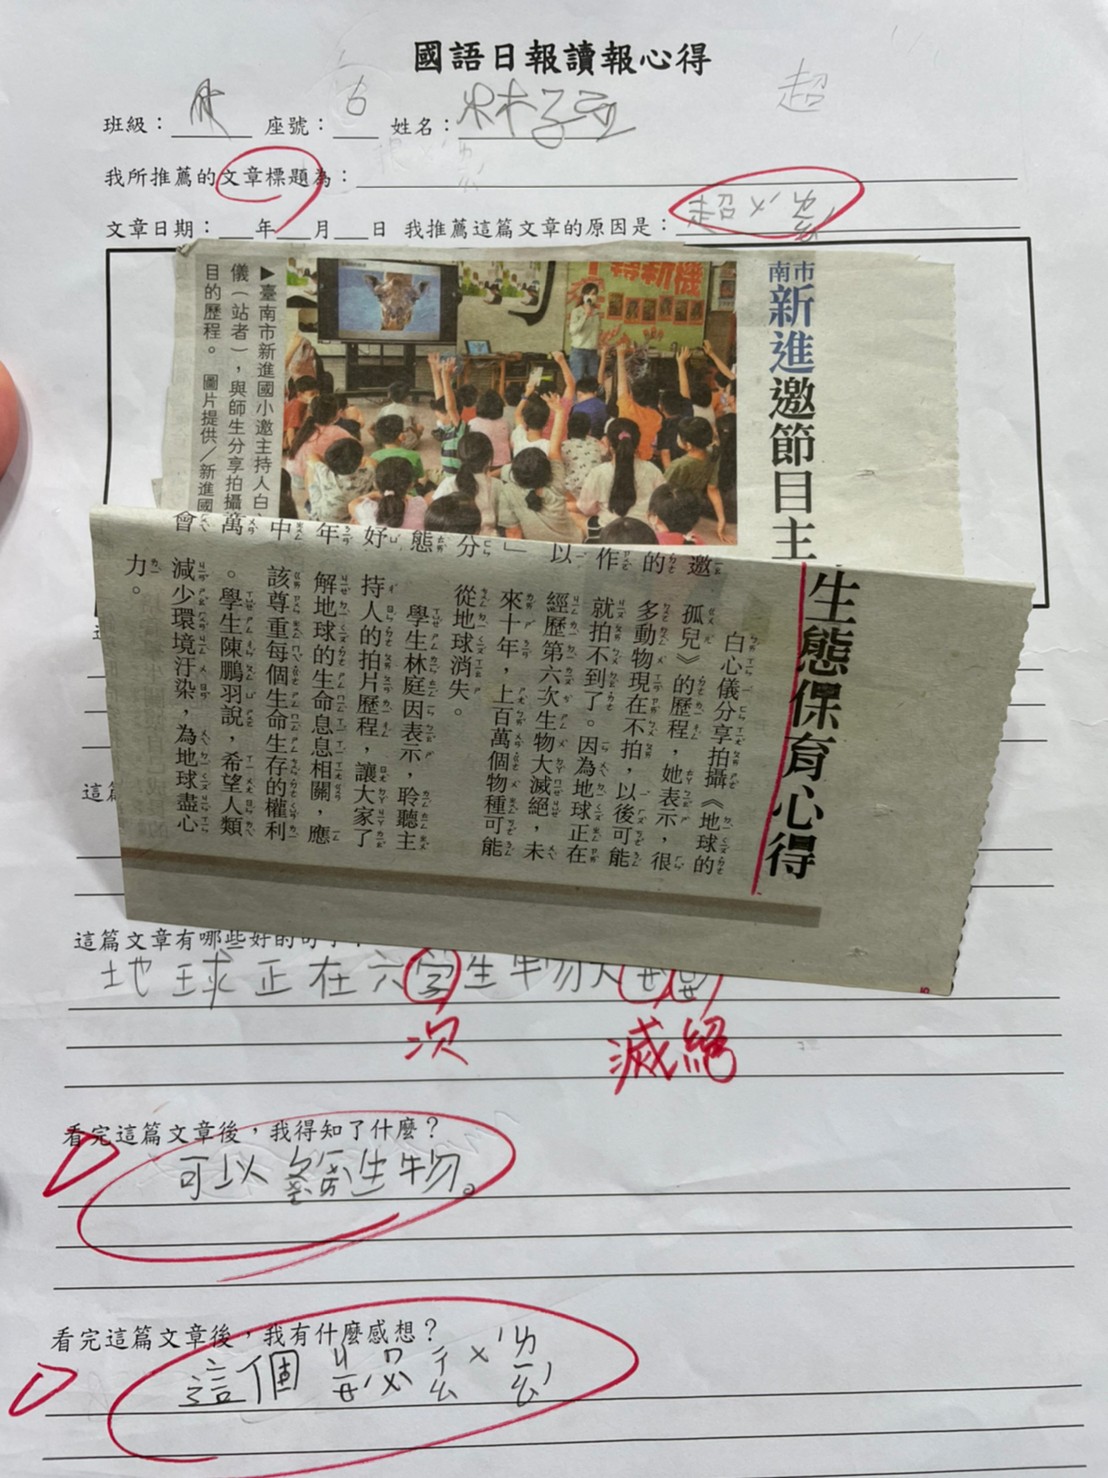 國語日報讀報心得
班級：　座號：　姓名：林子
超
我所推薦的文章標題為：
文章日期：　年　月　日 我推薦這篇文章的原因是：
南市
新進邀節目主
生態保育心得
▶臺南市新進國小邀主持人白
儀（站者），與師生分享拍攝
目的歷程。　圖片提供／新進國
邀
的
作
以
」
分
態
好
年
中
萬
會
白心儀分享拍攝《地球的
孤兒》的歷程，她表示，很
多動物現在不拍，以後可能
就拍不到了。因為地球正在
經歷第六次生物大滅絕，未
來十年，上百萬個物種可能
從地球消失。
學生林庭因表示，聆聽主
持人的拍片歷程，讓大家了
解地球的生命息息相關，應
該尊重每個生命生存的權利
。學生陳鵬羽說，希望人類
減少環境汙染，為地球盡心
力。
這篇
這篇文章有哪些好的句子
地球正在六字生物大
次　滅絕
看完這篇文章後，我得知了什麼？
可以　生物。
看完這篇文章後，我有什麼感想？
這個